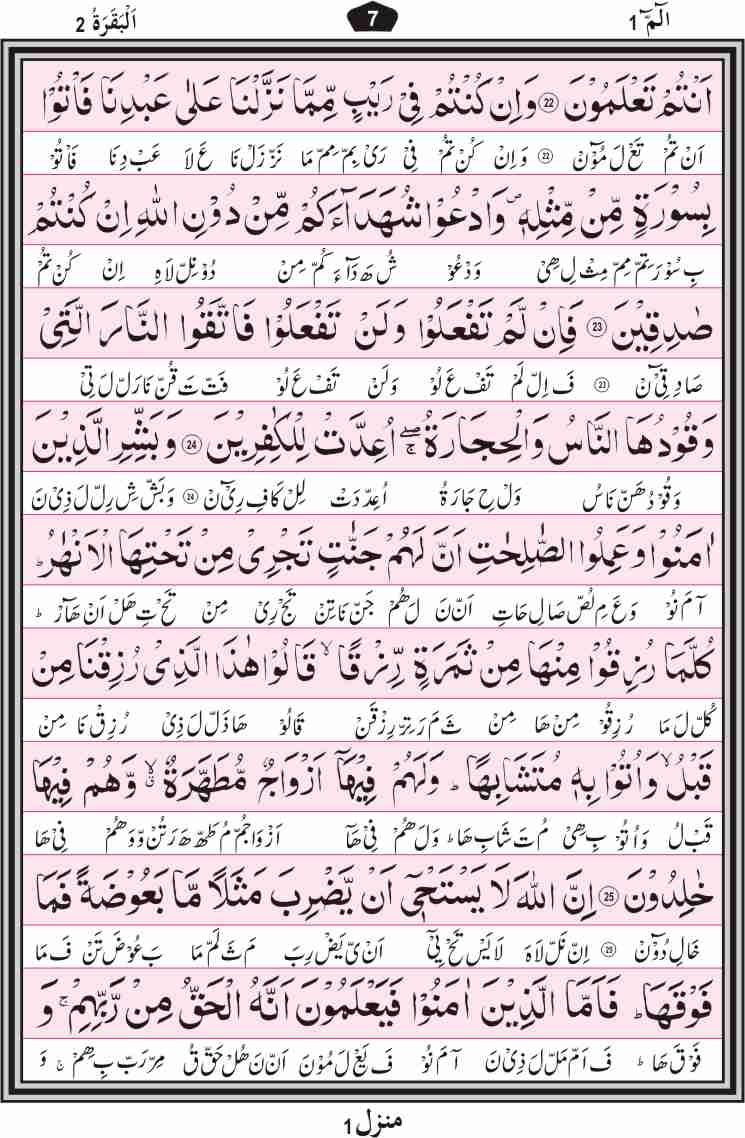 الٓمّٓ 1 7 اَلْبَقَرَةُ 2
اَنْتُمْ تَعْلَمُوْنَ ﴿22﴾ وَاِنْ كُنْتُمْ فِیْ رَیْبٍ مِّمَّا نَزَّلْنَا عَلٰی عَبْدِنَا فَاْتُوْا
اَنْ تُمْ تَعْ لَ مُوْٓنْ ﴿22﴾ وَ اِنْ كُنْ تُمْ فِیْ رَیْ بِمْ مِمْ مَا نَزْ زَلْ نَا عَ لَا عَبْ دِنَا فَاْ تُوْ
بِسُوْرَةٍ مِّنْ مِّثْلِهٖ ۪ وَادْعُوْا شُهَدَآءَكُمْ مِّنْ دُوْنِ اللّٰهِ اِنْ كُنْتُمْ
بِ سُوْ رَ تِمْ مِمْ مِثْ لِ هِیْ وَدْ عُوْ شُ هَ دَآ ءَ كُمْ مِنْ دُوْ نِلْ لَاهِ اِنْ كُنْ تُمْ
صٰدِقِیْنَ ﴿23﴾ فَاِنْ لَّمْ تَفْعَلُوْا وَلَنْ تَفْعَلُوْا فَاتَّقُوا النَّارَ الَّتِیْ
صَا دِ قِیْٓ نْ ﴿23﴾ فَ اِلْ لَمْ تَفْ عَ لُوْ وَ لَنْ تَفْ عَ لُوْ فَتْ تَ قُنْ نَا رَلْ لَ تِیْ
وَقُوْدُهَا النَّاسُ وَالْحِجَارَةُ ۖۚ اُعِدَّتْ لِلْكٰفِرِیْنَ ﴿24﴾ وَبَشِّرِ الَّذِیْنَ
وَ قُوْ دُ هَنْ نَا سُ وَلْ حِ جَا رَةُ اُ عِدْ دَتْ لِلْ كَا فِ رِیْٓ نْ ﴿24﴾ وَ بَشْ شِ رِلْ لَ ذِیْ نَ
اٰمَنُوْا وَعَمِلُوا الصّٰلِحٰتِ اَنَّ لَهُمْ جَنّٰتٍ تَجْرِیْ مِنْ تَحْتِهَا الْاَنْهٰرُ ؕ
آ مَ نُوْ وَ عَ مِ لُصْ صَا لِ حَا تِ اَنْ نَ لَ هُمْ جَنْ نَا تِنْ تَجْ رِیْ مِنْ تَحْ تِ هَلْ اَنْ هَآ رْ ؕ
كُلَّمَا رُزِقُوْا مِنْهَا مِنْ ثَمَرَةٍ رِّزْقًا ۙ قَالُوْا هٰذَا الَّذِیْ رُزِقْنَا مِنْ
كُلْ لَ مَا رُ زِ قُوْ مِنْ هَا مِنْ ثَ مَ رَ تِرْ رِزْ قَنْ قَا لُوْ هَا ذَلْ لَ ذِیْ رُ زِقْ نَا مِنْ
قَبْلُ ۙ وَاُتُوْا بِهٖ مُتَشَابِهًا ؕ وَلَهُمْ فِیْهَاۤ اَزْوَاجٌ مُّطَهَّرَةٌ ۙۗ وَّهُمْ فِیْهَا
قَبْ لُ وَ اُ تُوْ بِ هِیْ مُ تَ شَا بِ هَا ؕ وَ لَ هُمْ فِیْ هَآ اَزْ وَا جُمْ مُ طَهْ هَ رَ تُنْ وَ وَ هُمْ فِیْ هَا
خٰلِدُوْنَ ﴿25﴾ اِنَّ اللّٰهَ لَا یَسْتَحْیٖۤ اَنْ یَّضْرِبَ مَثَلًا مَّا بَعُوْضَةً فَمَا
خَا لِ دُوْٓ نْ ﴿25﴾ اِنْ نَلْ لَاهَ لَا یَسْ تَحْ یِیْٓ اَنْ یَ یَضْ رِبَ مَ ثَ لَمْ مَا بَ عُوْ ضَ تَنْ فَ مَا
فَوْقَهَا ؕ فَاَمَّا الَّذِیْنَ اٰمَنُوْا فَیَعْلَمُوْنَ اَنَّهُ الْحَقُّ مِنْ رَّبِّهِمْ ۚ وَ
فَوْ قَ هَا ؕ فَ اَمْ مَلْ لَ ذِیْ نَ آ مَ نُوْ فَ یَعْ لَ مُوْ نَ اَنْ نَ هُلْ حَقْ قُ مِرْ رَبْ بِ هِمْ ۚ وَ
منزل 1